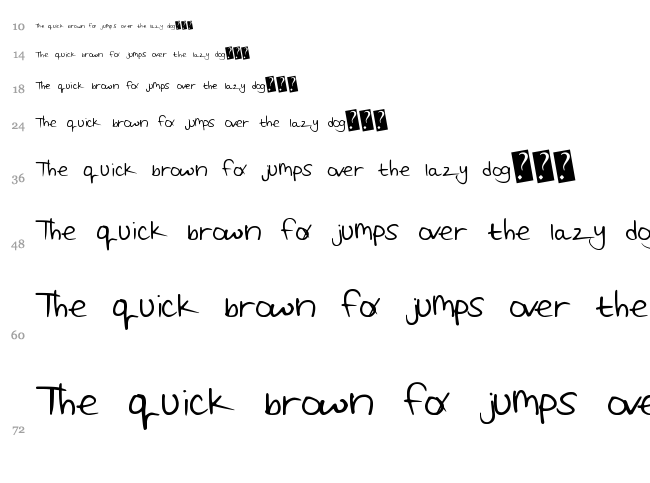 10 The quick brown fox jumps over the lazy dog???
14 The quick brown fox jumps over the lazy dog???
18 The quick brown fox jumps over the lazy dog???
24 The quick brown fox jumps over the lazy dog???
36 The quick brown fox jumps over the lazy dog???
48 The quick brown fox jumps over the lazy do
60 The quick brown fox jumps over the
72 The quick brown fox jumps ove